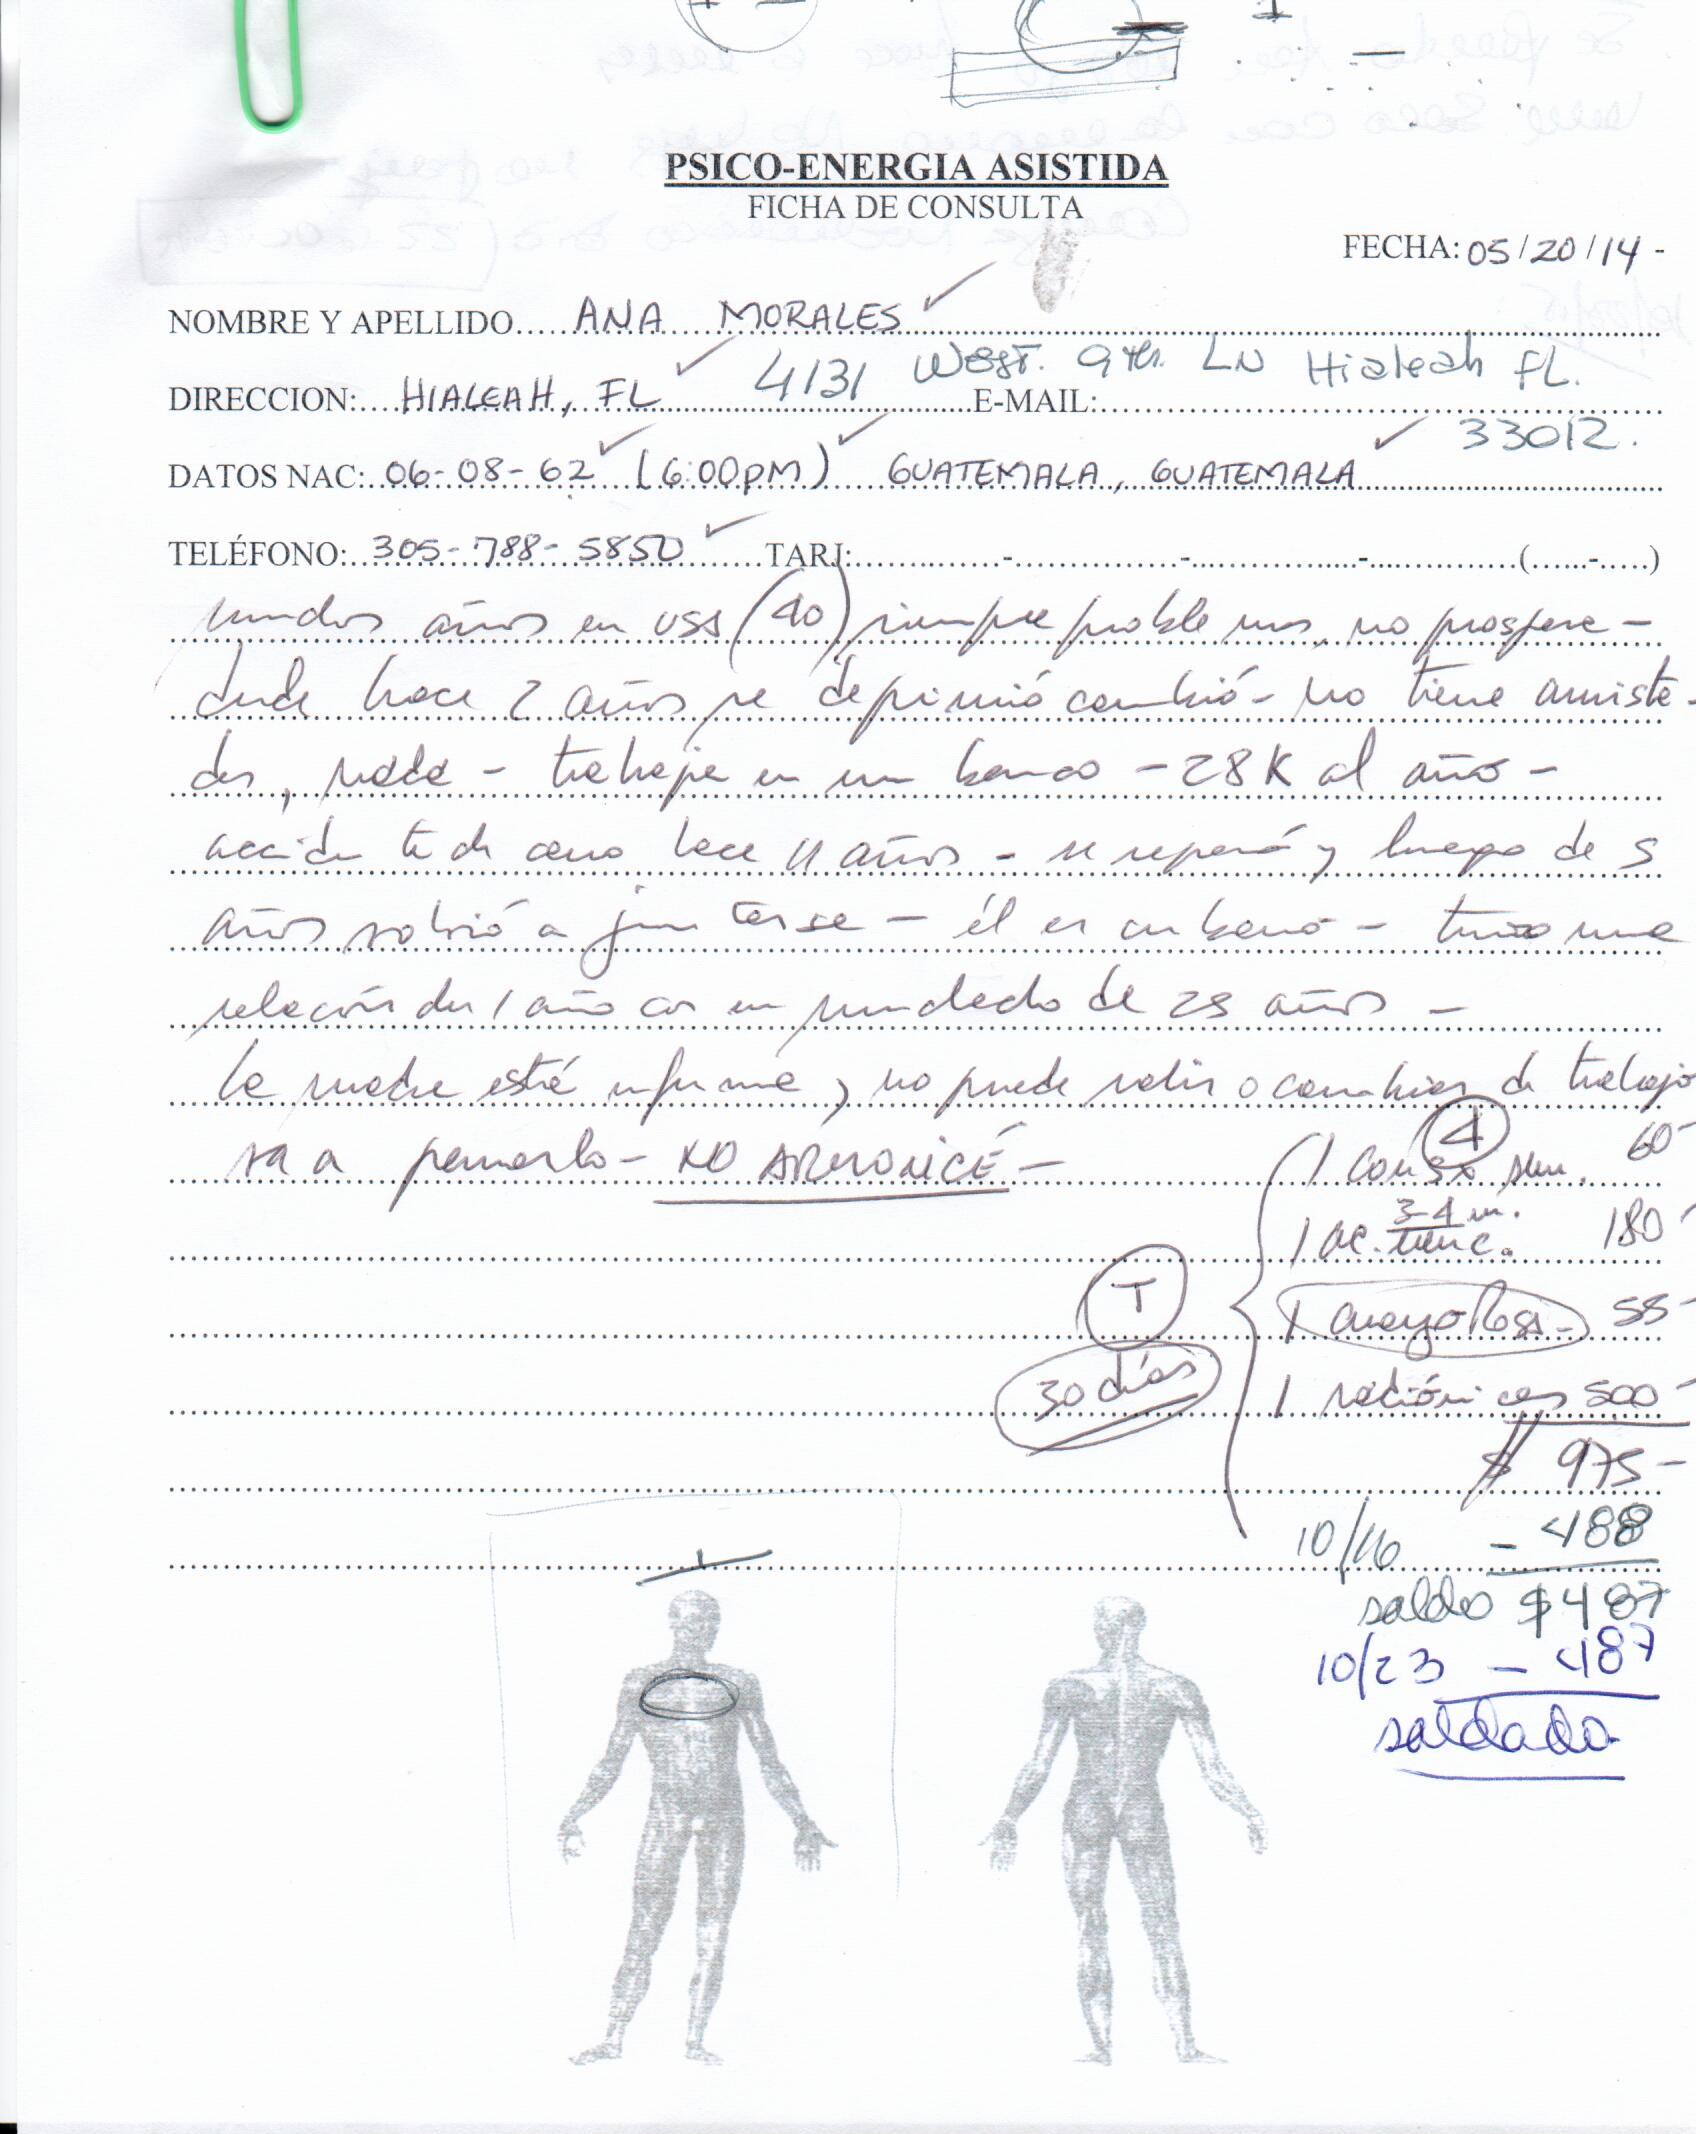 PSICO-ENERGIA ASISTIDA
FICHA DE CONSULTA
FECHA: 05/20/14 -
NOMBRE Y APELLIDO..... ANA MORALES
4131 West. 9th. LN Hialeah FL.
DIRECCION:.... HIALEAH, FL E-MAIL:
33012.
DATOS NAC: 06-08-62 (6:00PM) GUATEMALA, GUATEMALA
TELÉFONO: 305-788-5850 TARJ: - - - (......-.....)
muchos años en USA (40) siempre problemas, no prospera -
desde hace 2 años se deprimió cambió - no tiene amista-
des, nada - trabaja en un banco - 28K al año -
accidente de carro hace 11 años - se separó y luego de 5
años volvió a juntarse - él es cubano - tuvo una
relación de 1 año con un muchacho de 25 años -
la madre está enferma, no puede salir o cambiar de trabajo
va a pensarlo - NO ARMONICÉ -
4
1 cons. 60-
1 ac. 3-4 m. 180-
T
1 55-
30 días
1 radiónicas 500-
$ 975-
10/16 - 488
saldo $487
10/23 - 487
saldado